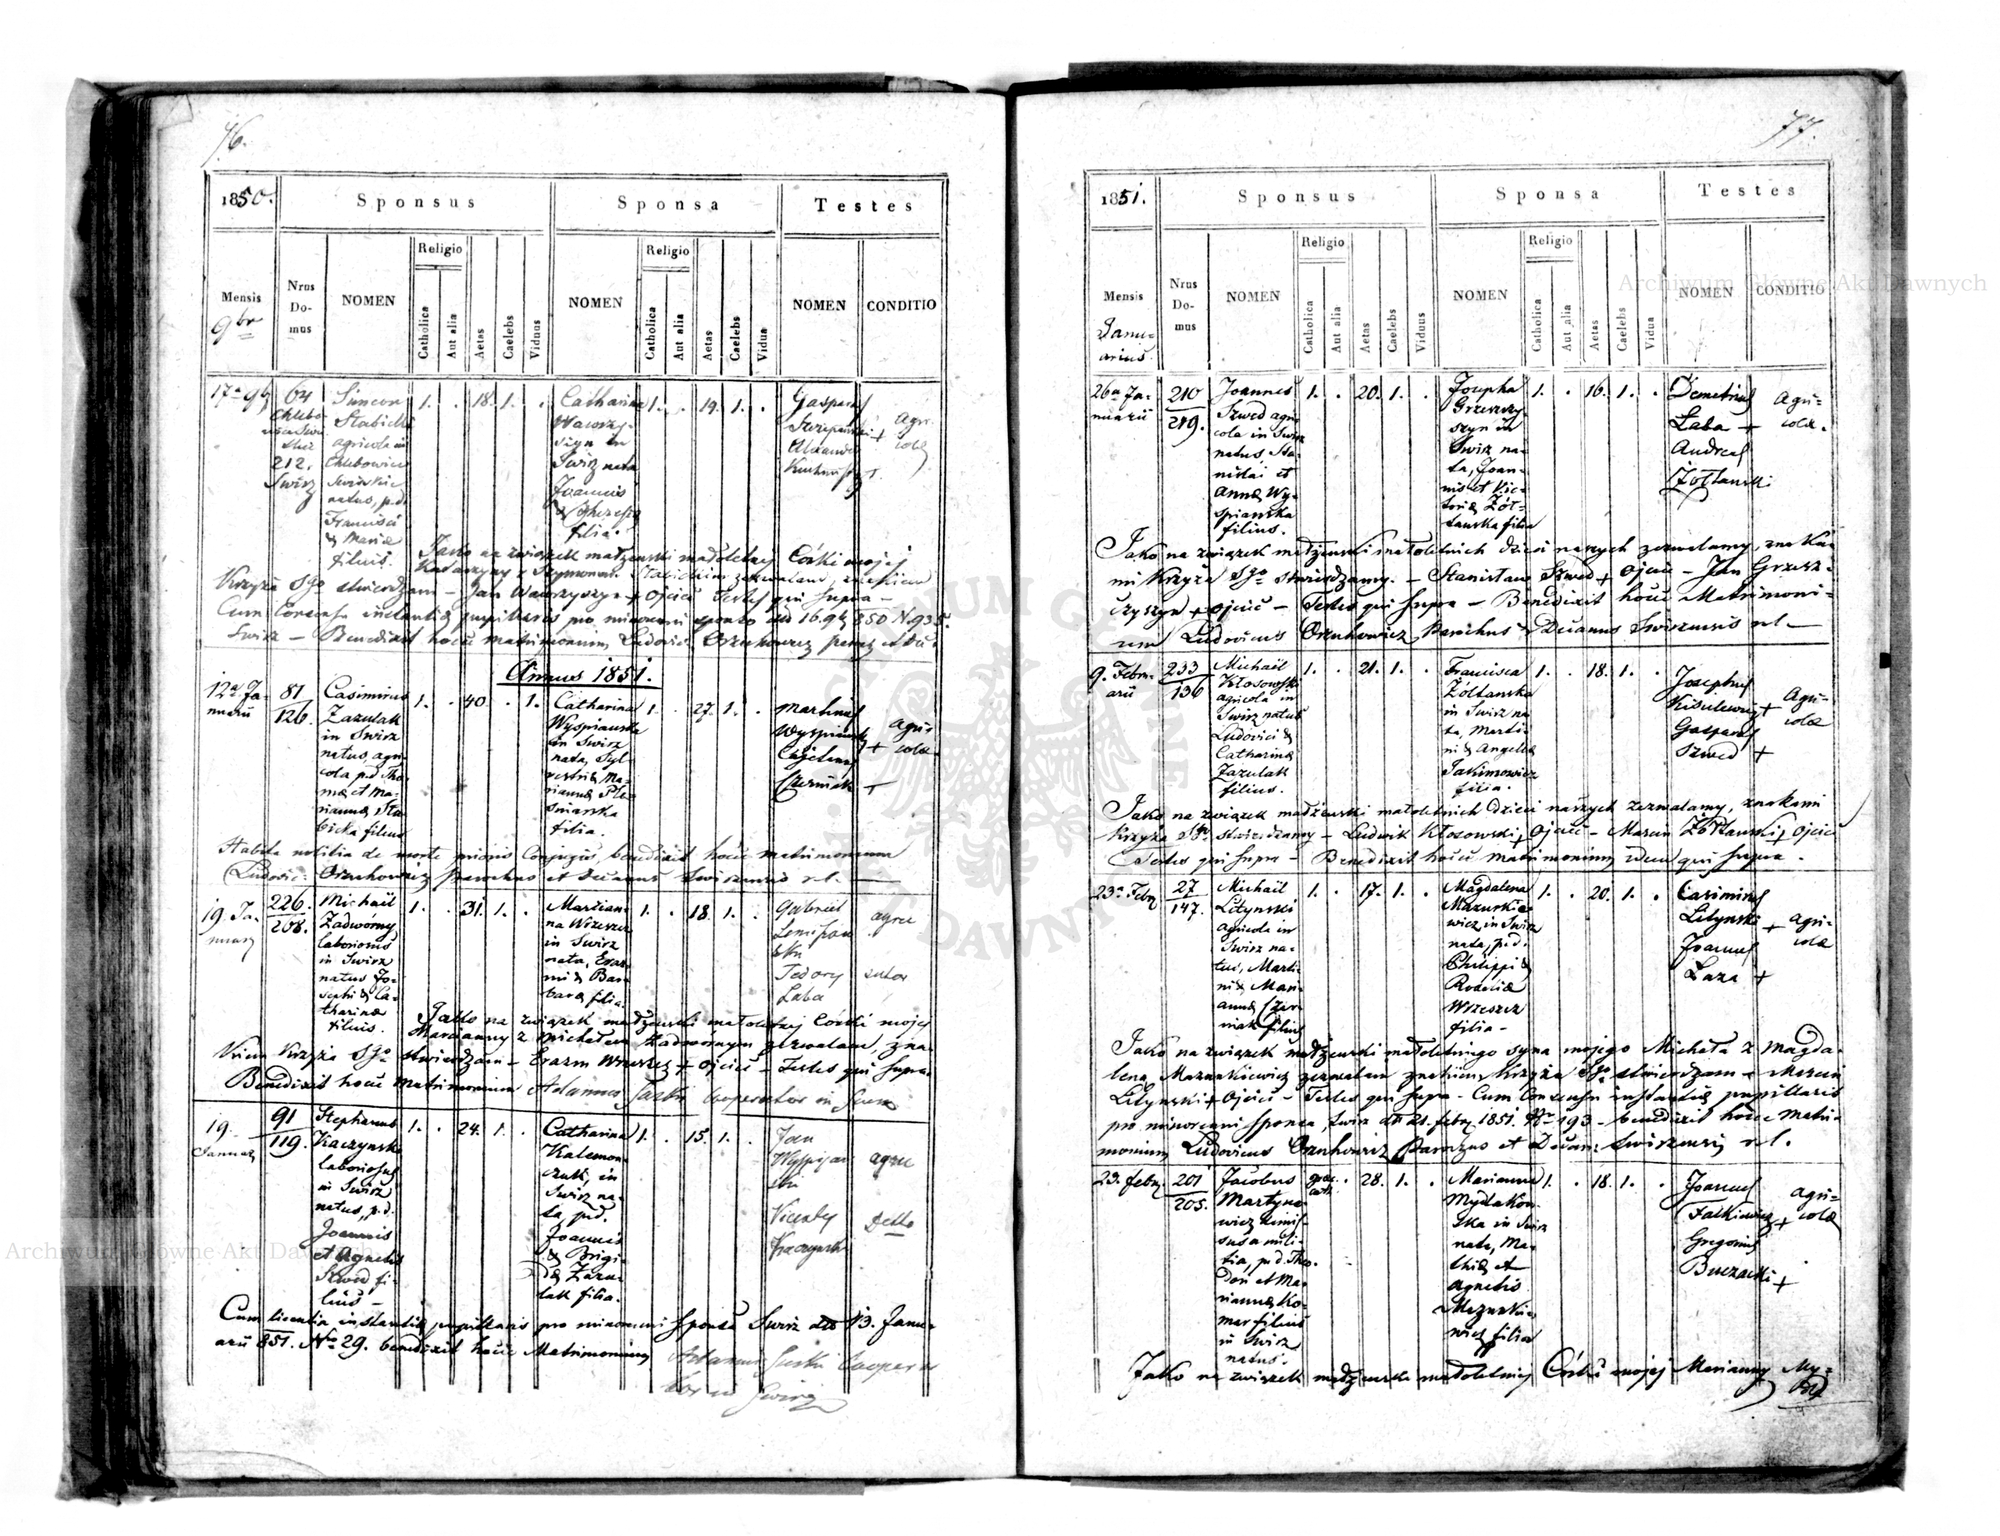 76.
1850.
Sponsus
Sponsa
Testes
Mensis
9br
Nrus
Do-
mus
NOMEN
Religio
Catholica
Aut alia
Aetas
Caelebs
Viduus
NOMEN
Religio
Catholica
Aut alia
Aetas
Caelebs
Vidua
NOMEN
CONDITIO
17a 9b
64
212.
Swirz
Simeon
Stabicki
agricola in
Chlebowice
natus, p.d.
Francisci
& Maria
filius.
1. . 18. 1. .
Catharina
Wawrzy-
szyn in
Swirz nata
Joannis
filia.
1. . 19. 1. .
Gaspar
+
+
Agri-
colæ
Jako na związek małżeński małoletniej Córki mojej
Katarzyny z Szymonem Stabickim zezwalam, znakiem
Krzyża Sgo stwierdzam – Jan Wawrzyszyn + Ojciec Testes qui supra –
Cum Consensu instantiæ pupillaris pro minorenni sponsa 16. 9b 850 N. 935.
Swirz – Benedixit hocce matrimonium Ludovic
Annus 1851.
12a Ja-
nuarii
81
126.
Casimirus
Zazulak
in Swirz
natus agri-
cola p.d. Tho-
mæ et Ma-
riannæ Sta-
bicka filius
1. . 40. . 1.
Catharina
Wyspianska
in Swirz
nata, Syl-
vestri & Ma-
riannæ
filia.
1. . 27. 1. .
Martinus
+
Cajetanus
Czerniak +
Agri-
colæ
Habita notitia de morte prioris Conjugis, benedixit hocce matrimonium
Ludovic: Parochus et Decanus Swirzensis
19. Ja-
nuary
226.
208.
Michaël
Zadwórny
laboriosus
in Swirz
natus Jo-
sephi & Ca-
tharinæ
filius.
1. . 31. 1. .
Marian-
na Wrzeszcz
in Swirz
nata, Eras-
mi & Bar-
baræ filia
1. . 18. 1. .
Gabriel
Fedory
Laba
agric
sutor
Jako na związek małżeński małoletniej Córki mojej
Marianny z Michałem Zadwórnym zezwalam, zna-
kiem Krzyża Sgo stwierdzam – Erazm Wrzeszcz + Ojciec – Testes qui supra
Benedixit hocce matrimonium Adamus Cooperator in Swirz
19.
Januar
91
119.
Stephanus
Kaczynski
laboriosus
in Swirz
natus, p.d.
Joannis
et Agnetis
Szwed fi-
lius –
1. . 24. 1. .
Catharina
Kalemon-
czuk, in
Swirz na-
ta, p.d.
Joannis
& Brigi-
dæ Zazu-
lak filia.
1. . 15. 1. .
Jan
Wyspian
ski
Vicenty
Kaczynski
agric
Detto
Cum licentia instantiæ pupillaris pro minorenni Sponsa Swirz ddo 13. Janu-
arii 851. No 29. benedixit hocce Matrimonium Adamus Coopera
tor in Swirz
77.
1851.
Sponsus
Sponsa
Testes
Mensis
Janu-
arius.
Nrus
Do-
mus
NOMEN
Religio
Catholica
Aut alia
Aetas
Caelebs
Viduus
NOMEN
Religio
Catholica
Aut alia
Aetas
Caelebs
Vidua
NOMEN
CONDITIO
26a Ja-
nuarii
210
219.
Joannes
Szwed agri-
cola in Swirz
natus, Sta-
nislai et
Annæ Wy-
spianska
filius.
1. . 20. 1. .
Josepha
Grzeszczy-
szyn in
Swirz na-
ta, Joan-
nis et Vic-
toriæ Żół-
tanska filia
1. . 16. 1. .
Demetrius
Laba +
Andreas
Żołtanski
Agri-
colæ.
Jako na związek małżeński małoletnich dzieci naszych zezwalamy, znaka-
mi Krzyża Sgo stwierdzamy. – Stanisław Szwed + Ojciec – Jan Grzesz-
czyszyn + Ojciec – Testes qui supra – Benedixit hocce Matrimoni-
um Ludovicus Parochus & Decanus Swirzensis
9. Febru-
arii
233
136
Michaël
Kłosowski
agricola in
Swirz natus
Ludovici &
Catharinæ
Zazulak
filius.
1. . 21. 1. .
Francisca
Żółtanska
in Swirz na-
ta, Marti-
ni & Angelæ
Jakimowicz
filia.
1. . 18. 1. .
Josephus
Kisielewicz +
Gasparus
Szwed +
Agri-
colæ
Jako na związek małżeński małoletnich dzieci naszych zezwalamy, znakami
Krzyża Sgo stwierdzamy – Ludwik Kłosowski + Ojciec – Marcin Żółtanski + Ojciec
Testes qui supra – Benedixit hocce Matrimonium idem qui supra.
23a Febr
27
147.
Michaël
Litynski
agricola in
Swirz na-
tus, Marti-
ni & Mari-
annæ Czer-
niak filius
1. . 17. 1. .
Magdalena
Mazurkie-
wicz, in Swirz
nata, p.d.
Philippi &
Rosaliæ
Wrzeszcz
filia –
1. . 20. 1. .
Casimirus
Litynski +
Joannes
Laza +
Agri-
colæ
Jako na związek małżeński małoletniego syna mojego Michała z Magda-
leną Mazurkiewicz zezwalam znakiem Krzyża Sgo stwierdzam – Marcin
Litynski + Ojciec – Testes qui supra – Cum Consensu instantiæ pupillaris
pro minorenni sponsa, Swirz 21. febr 1851. Nr 193 – benedixit hocce matri-
monium Ludovicus Parochus et Decan. Swirzensis
23. febr
201
205.
Jacobus
Martyno-
wicz dimis-
sus a mili-
tia, p.d. Theo-
dori et Ma-
riannæ Ko-
mar filius
in Swirz
natus.
græc.
cath.
. 28. 1. .
Marianna
in Swirz
nata, Ma-
thiæ et
Agnetis
Mazurkie-
wicz filia
1. . 18. 1. .
Joannes
Falkiewicz +
Gregorius
Buczacki +
Agri-
colæ
Jako na związek małżeński małoletniej Córki mojej Marianny My-
Archiwum Główne Akt Dawnych
Archiwum Główne Akt Dawnych